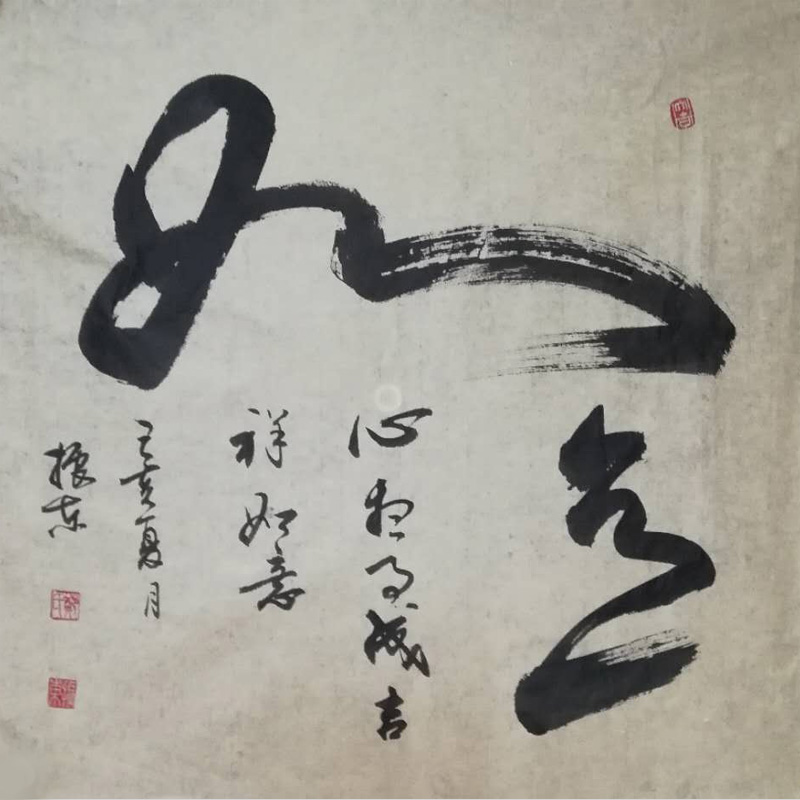 如意
心想事成吉
祥如意
己亥夏月
振东